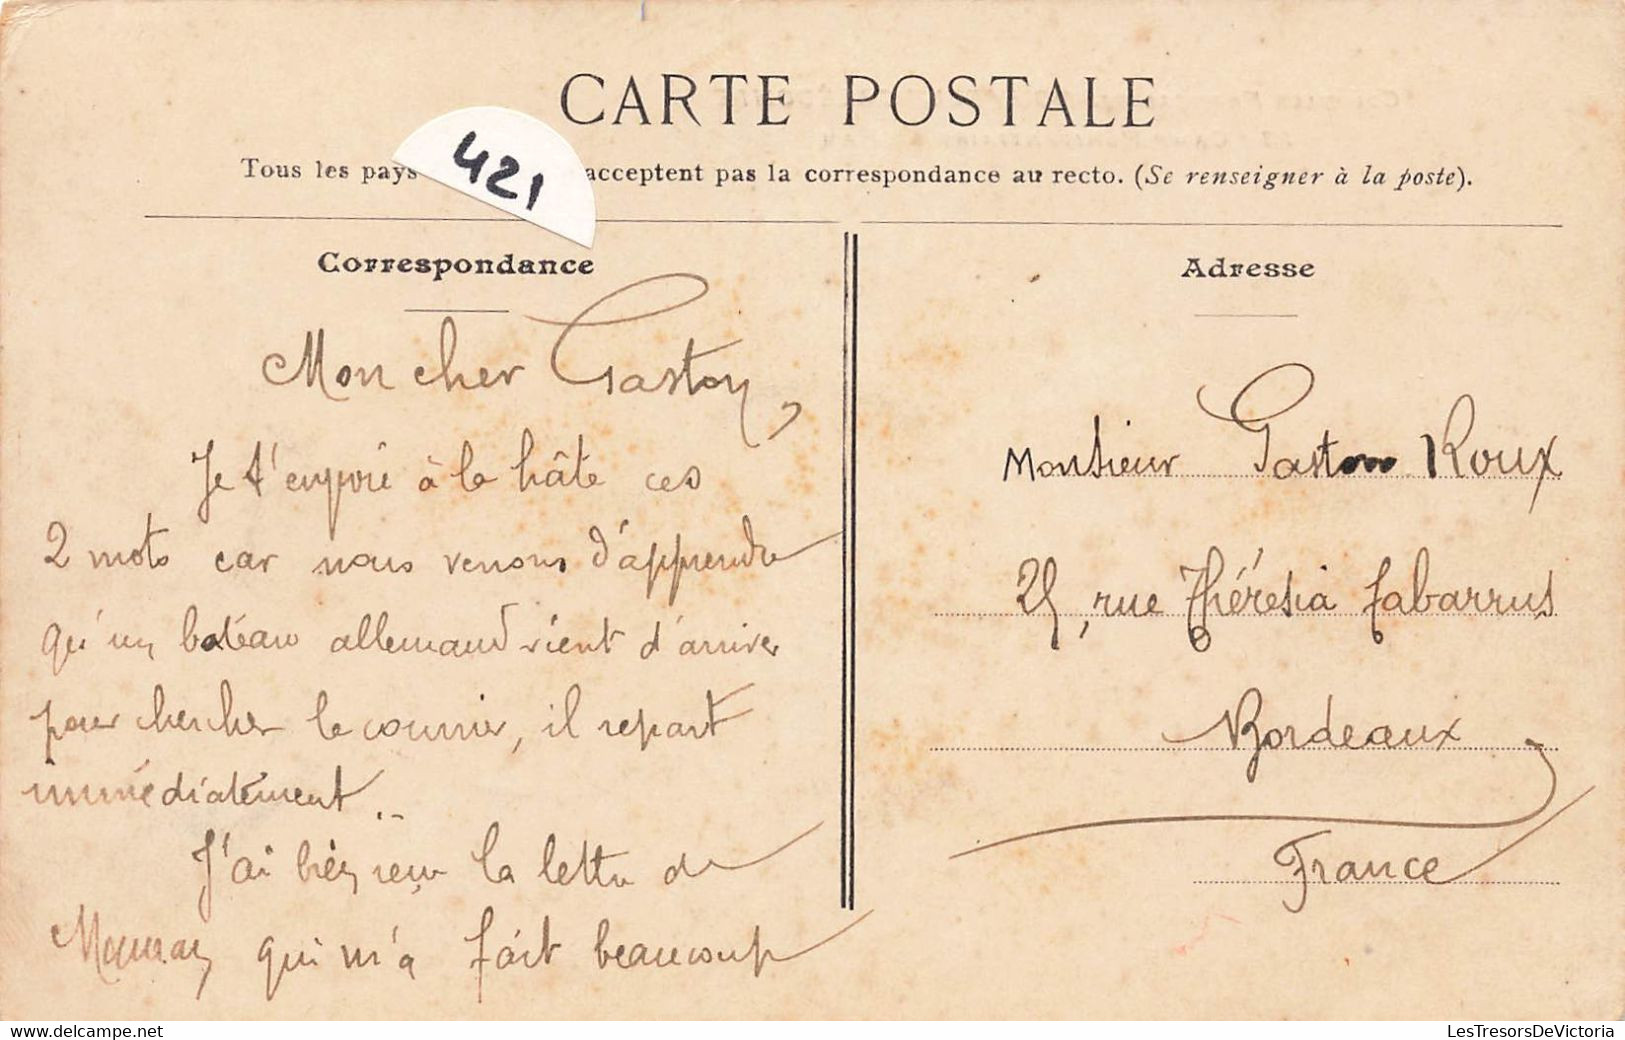 CARTE POSTALE
421
Tous les pays acceptent pas la correspondance au recto. (Se renseigner à la poste).
Correspondance
Mon cher Gaston,
Je t'envoie à la hâte ces
2 mots car nous venons d'apprendre
qu'un bateau allemand vient d'arriver
pour chercher le courrier, il repart
immédiatement..
J'ai bien reçu la lettre de
Maman qui m'a fait beaucoup
Adresse
Monsieur Gaston Roux
25, rue Thérésia Cabarrus
Bordeaux
France
delcampe.net
LesTresorsDeVictoria